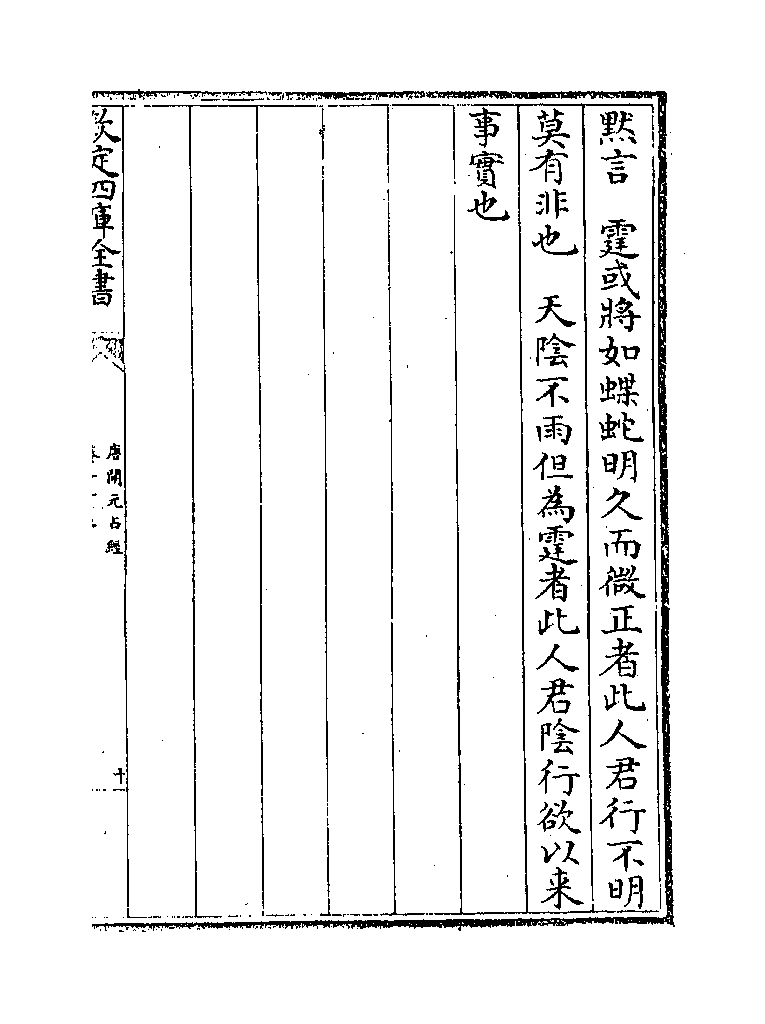 默言　霆或將如蝶蛇明久而微正者此人君行不明
莫有非也　天陰不雨但為霆者此人君陰行欲以来
事實也
欽定四庫全書
唐開元占經
十